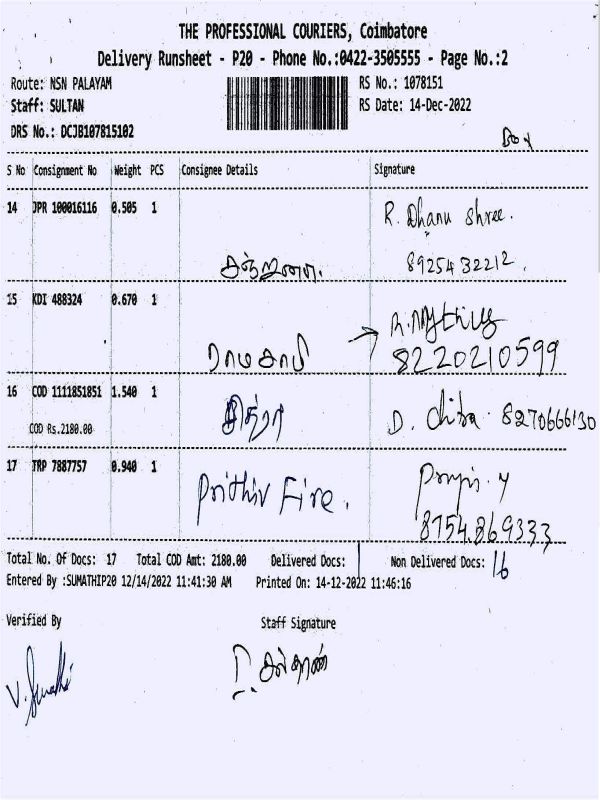 THE PROFESSIONAL COURIERS, Coimbatore
Delivery Runsheet - P20 - Phone No.:0422-3505555 - Page No.:2
Route: NSN PALAYAM
RS No.: 1078151
Staff: SULTAN
RS Date: 14-Dec-2022
DRS No.: DCJB107815102
Box
S No Consignment No Weight PCS Consignee Details Signature
14 JPR 100016116 0.505 1 R. Dhanu shree.
8925432212
15 KDI 488324 0.670 1
ராமசாமி 8220210599
16 COD 1111851851 1.540 1 சித்ரா D. chitra 8270666130
COD Rs.2180.00
17 TRP 7887757 0.940 1 Prithiv Fire.
8754869333
Total No. Of Docs: 17 Total COD Amt: 2180.00 Delivered Docs: 1 Non Delivered Docs: 16
Entered By :SUMATHIP20 12/14/2022 11:41:30 AM Printed On: 14-12-2022 11:46:16
Verified By Staff Signature
V. Sumathi